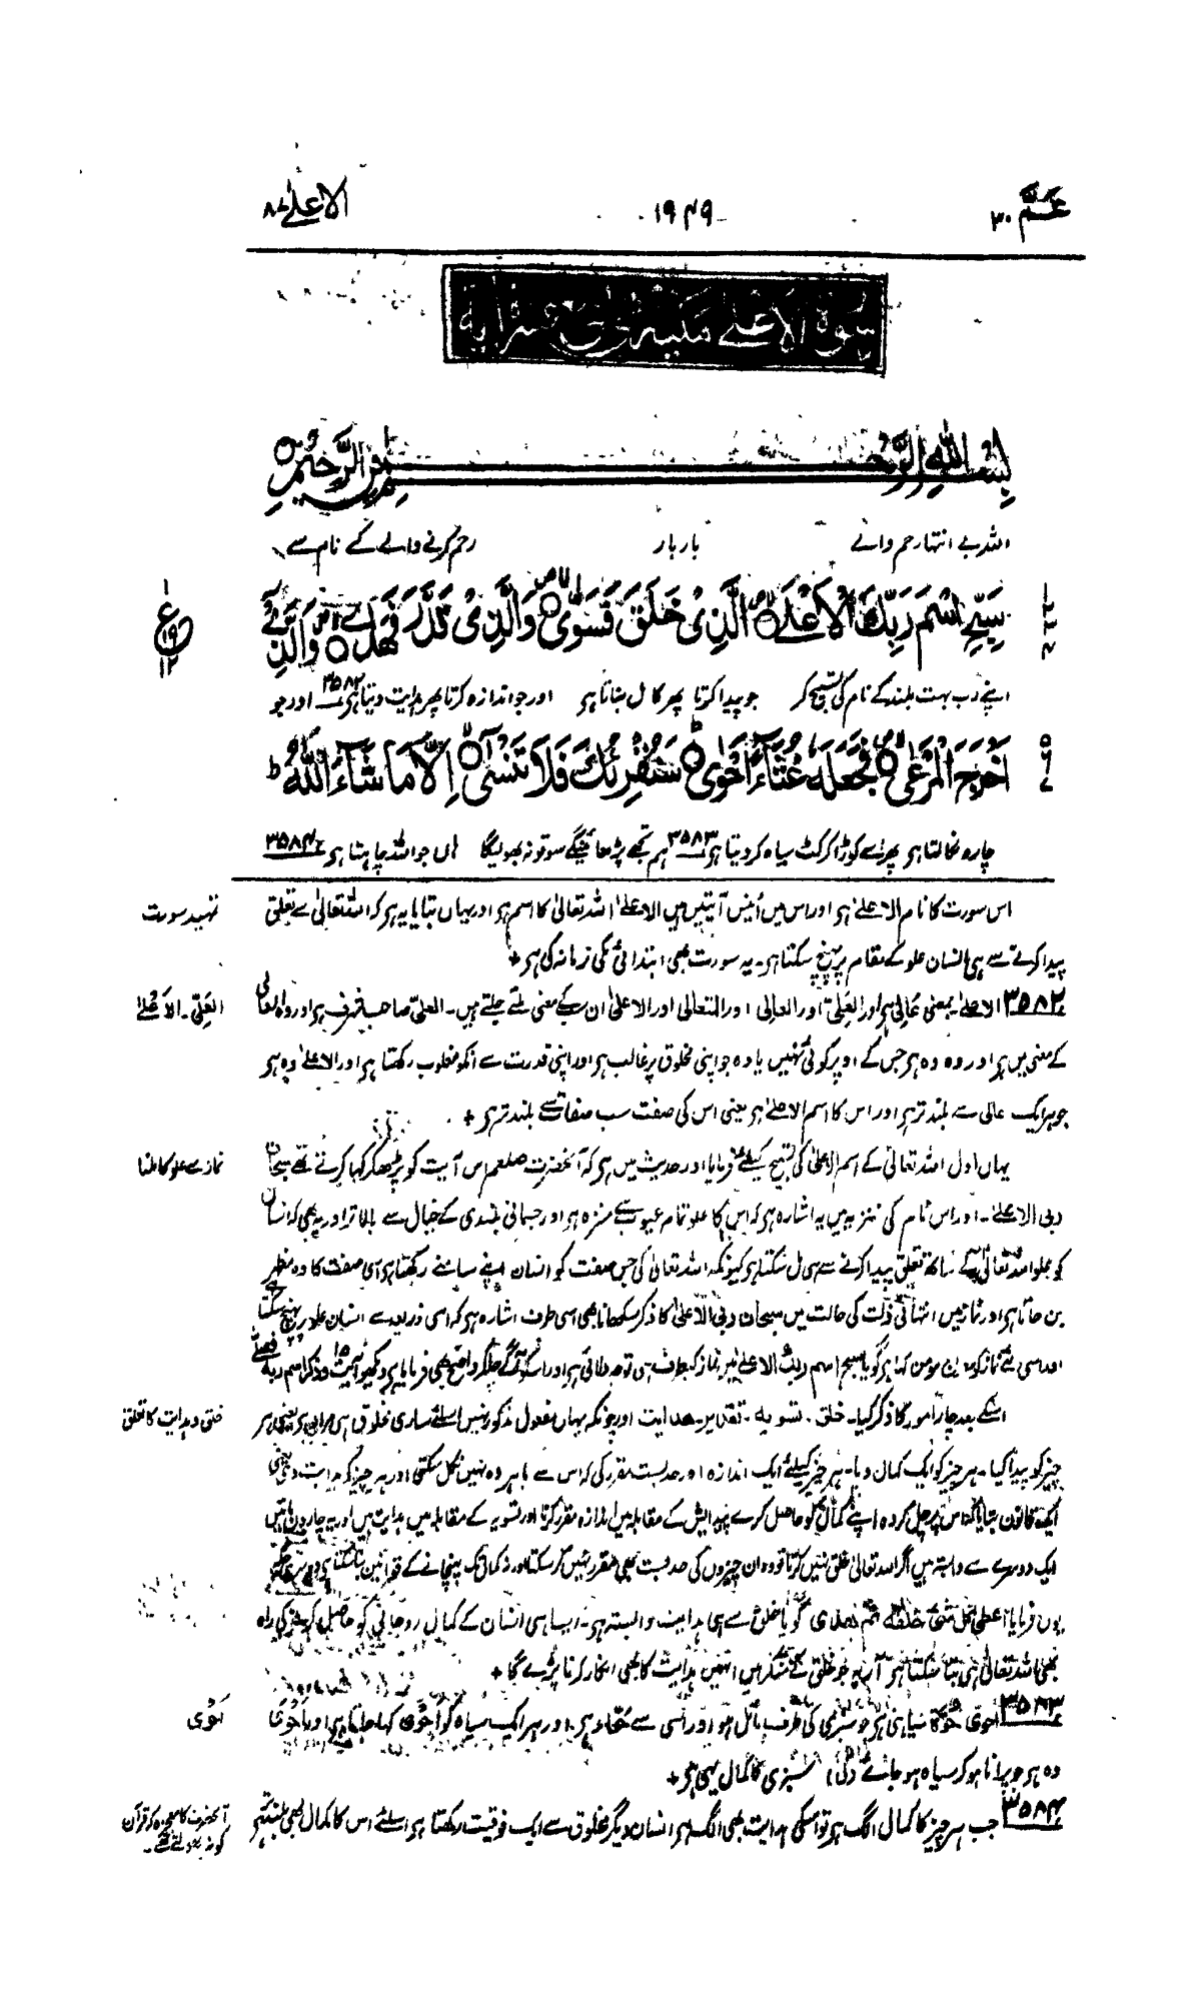 عَمَّ ۳۰
۱۹۴۹
الاعلیٰ ۸۷
سورة الاعلى مكية وهي تسع عشر اٰية
بِسْمِ اللّٰهِ الرَّحْمٰنِ الرَّحِيْمِ
اللہ بے انتہا رحم والے بار بار رحم کرنے والے کے نام سے
سَبِّحِ اسْمَ رَبِّكَ الْاَعْلَى الَّذِىْ خَلَقَ فَسَوّٰى وَالَّذِىْ قَدَّرَ فَهَدٰى وَالَّذِىْٓ
اپنے رب بہت بلند کے نام کی تسبیح کر جو پیدا کرتا پھر کامل بناتا ہو اور جو اندازہ کرتا پھر ہدایت دیتا ہو ۳۵۸۲ اور جو
اَخْرَجَ الْمَرْعٰى فَجَعَلَهٗ غُثَآءً اَحْوٰى سَنُقْرِئُكَ فَلَا تَنْسٰٓى اِلَّا مَا شَآءَ اللّٰهُ ط
چارہ نکالتا ہو پھر اسے کوڑا کرکٹ سیاہ کر دیتا ہو ۳۵۸۳ ہم تجھے پڑھائینگے سو تو نہ بھولیگا ہاں جو اللہ چاہتا ہو ۳۵۸۴
تمہید سورت
اس سورت کا نام الاعلیٰ ہو اور اس میں اُنیس آیتیں ہیں الاعلیٰ اللہ تعالیٰ کا اسم ہو اور یہاں بتایا یہ ہو کہ اللہ تعالیٰ سے تعلق
پیدا کرنے سے ہی انسان علو کے مقام پر پہنچ سکتا ہو۔ یہ سورت بھی ابتدائی مکی زمانہ کی ہو +
العَلِیّ۔ الاَعْلیٰ
۳۵۸۲ الاعلیٰ بمعنی عَالِی ہو اور العَلِیّ اور العالی اور المتعالی اور الاعلیٰ ان سب کے معنی ملتے جلتے ہیں۔ العلیّ صاحب شرف ہو اور وہ العالی
کے معنی میں ہو اور وہ وہ ہو جس کے اوپر کوئی نہیں یا وہ جو اپنی مخلوق پر غالب ہو اور اپنی قدرت سے انکو مغلوب رکھتا ہو اور الاعلیٰ وہ ہو
جو ہر ایک عالی سے بلند تر ہو اور اس کا اسم الاعلیٰ ہو یعنی اس کی صفت سب صفات سے بلند تر ہو +
نماز سے علو کا ملنا
یہاں اول اللہ تعالیٰ کے اسم الاعلیٰ کی تسبیح کیلئے فرمایا اور حدیث میں ہو کہ آنحضرت صلعم اس آیت کو پڑھکر کہا کرتے تھے سبحان
ربی الاعلیٰ۔ اور اس نام کی تنزیہ میں یہ اشارہ ہو کہ اس کا علو تمام عیوب سے منزہ ہو اور جسمانی بلندی کے خیال سے بالاتر اور یہ بھی کہ انسان
کو علو اللہ تعالیٰ کے ساتھ تعلق پیدا کرنے سے ہی مل سکتا ہو کیونکہ اللہ تعالیٰ کی جس صفت کو انسان اپنے سامنے رکھتا ہو اسی صفت کا وہ مظہر
بن جاتا ہو اور نماز میں انتہائی ذلت کی حالت میں سبحان ربی الاعلیٰ کا ذکر سکھانا بھی اسی طرف اشارہ ہو کہ اسی ذریعہ سے انسان علو پر پہنچ سکتا
اور اسی لئے نماز کو کہا ہو گویا سبح اسم ربك الاعلیٰ میں نماز کیطرف ہی توجہ دلائی ہو اور اسکو آگے چلکر واضح بھی فرمایا ہو دیکھو آیت ۱۵ وذکر اسم ربہ فصلّٰی
خلق و ہدایت کا تعلق
اسکے بعد چار امور کا ذکر کیا۔ خلق۔ تسویہ۔ تقدیر۔ ھدایت اور چونکہ یہاں مفعول مذکور نہیں اسلئے ساری مخلوق ہی مراد ہو یعنی ہر
چیز کو پیدا کیا۔ ہر چیز کو ایک کمال دیا۔ ہر چیز کیلئے ایک اندازہ اور حد بست مقرر کی کہ اس سے باہر وہ نہیں نکل سکتی اور ہر چیز کو ہدایت دی یعنی
ایک قانون بتایا کہ اس پر چل کر وہ اپنے کمال کو حاصل کرے پیدائش کے مقابلہ میں اندازہ مقرر کرنا اور تسویہ کے مقابلہ میں ہدایت ہیں اور یہ چاروں باتیں
ایک دوسرے سے وابستہ ہیں اگر اللہ تعالیٰ خلق نہیں کرتا تو وہ ان چیزوں کی حد بست بھی مقرر نہیں کر سکتا اور نہ کمال تک پہنچانے کے قوانین بتا سکتا ہو
یوں فرمایا اعطی کل شیء خلقہ ثم ھدی گویا خلق سے ہی ہدایت وابستہ ہو۔ ایسا ہی انسان کے کمال روحانی کو حاصل کرنے کی راہ
بھی اللہ تعالیٰ ہی بتا سکتا ہو آریہ جو خلق کے منکر ہیں انہیں ہدایت کا بھی انکار کرنا پڑے گا +
اَحْوٰی
۳۵۸۳ احویٰ حُوَّة سیاہی ہو جو سبزی کی طرف مائل ہو اور اسی سے ہو اور ہر ایک سیاہ کو اَحْوٰی کہا جاتا ہو اور اَحْوٰی
وہ ہو جو پرانا ہو کر سیاہ ہو جائے (ل) سبزی کا کمال یہی ہو +
آنحضرت کا معجزہ کہ قرآن
کو نہ بھولتے تھے۔
۳۵۸۴ جب ہر چیز کا کمال الگ ہو تو اسکی ہدایت بھی الگ ہو انسان دیگر مخلوق سے ایک فوقیت رکھتا ہو اسلئے اس کا کمال بھی بلند تر ہو